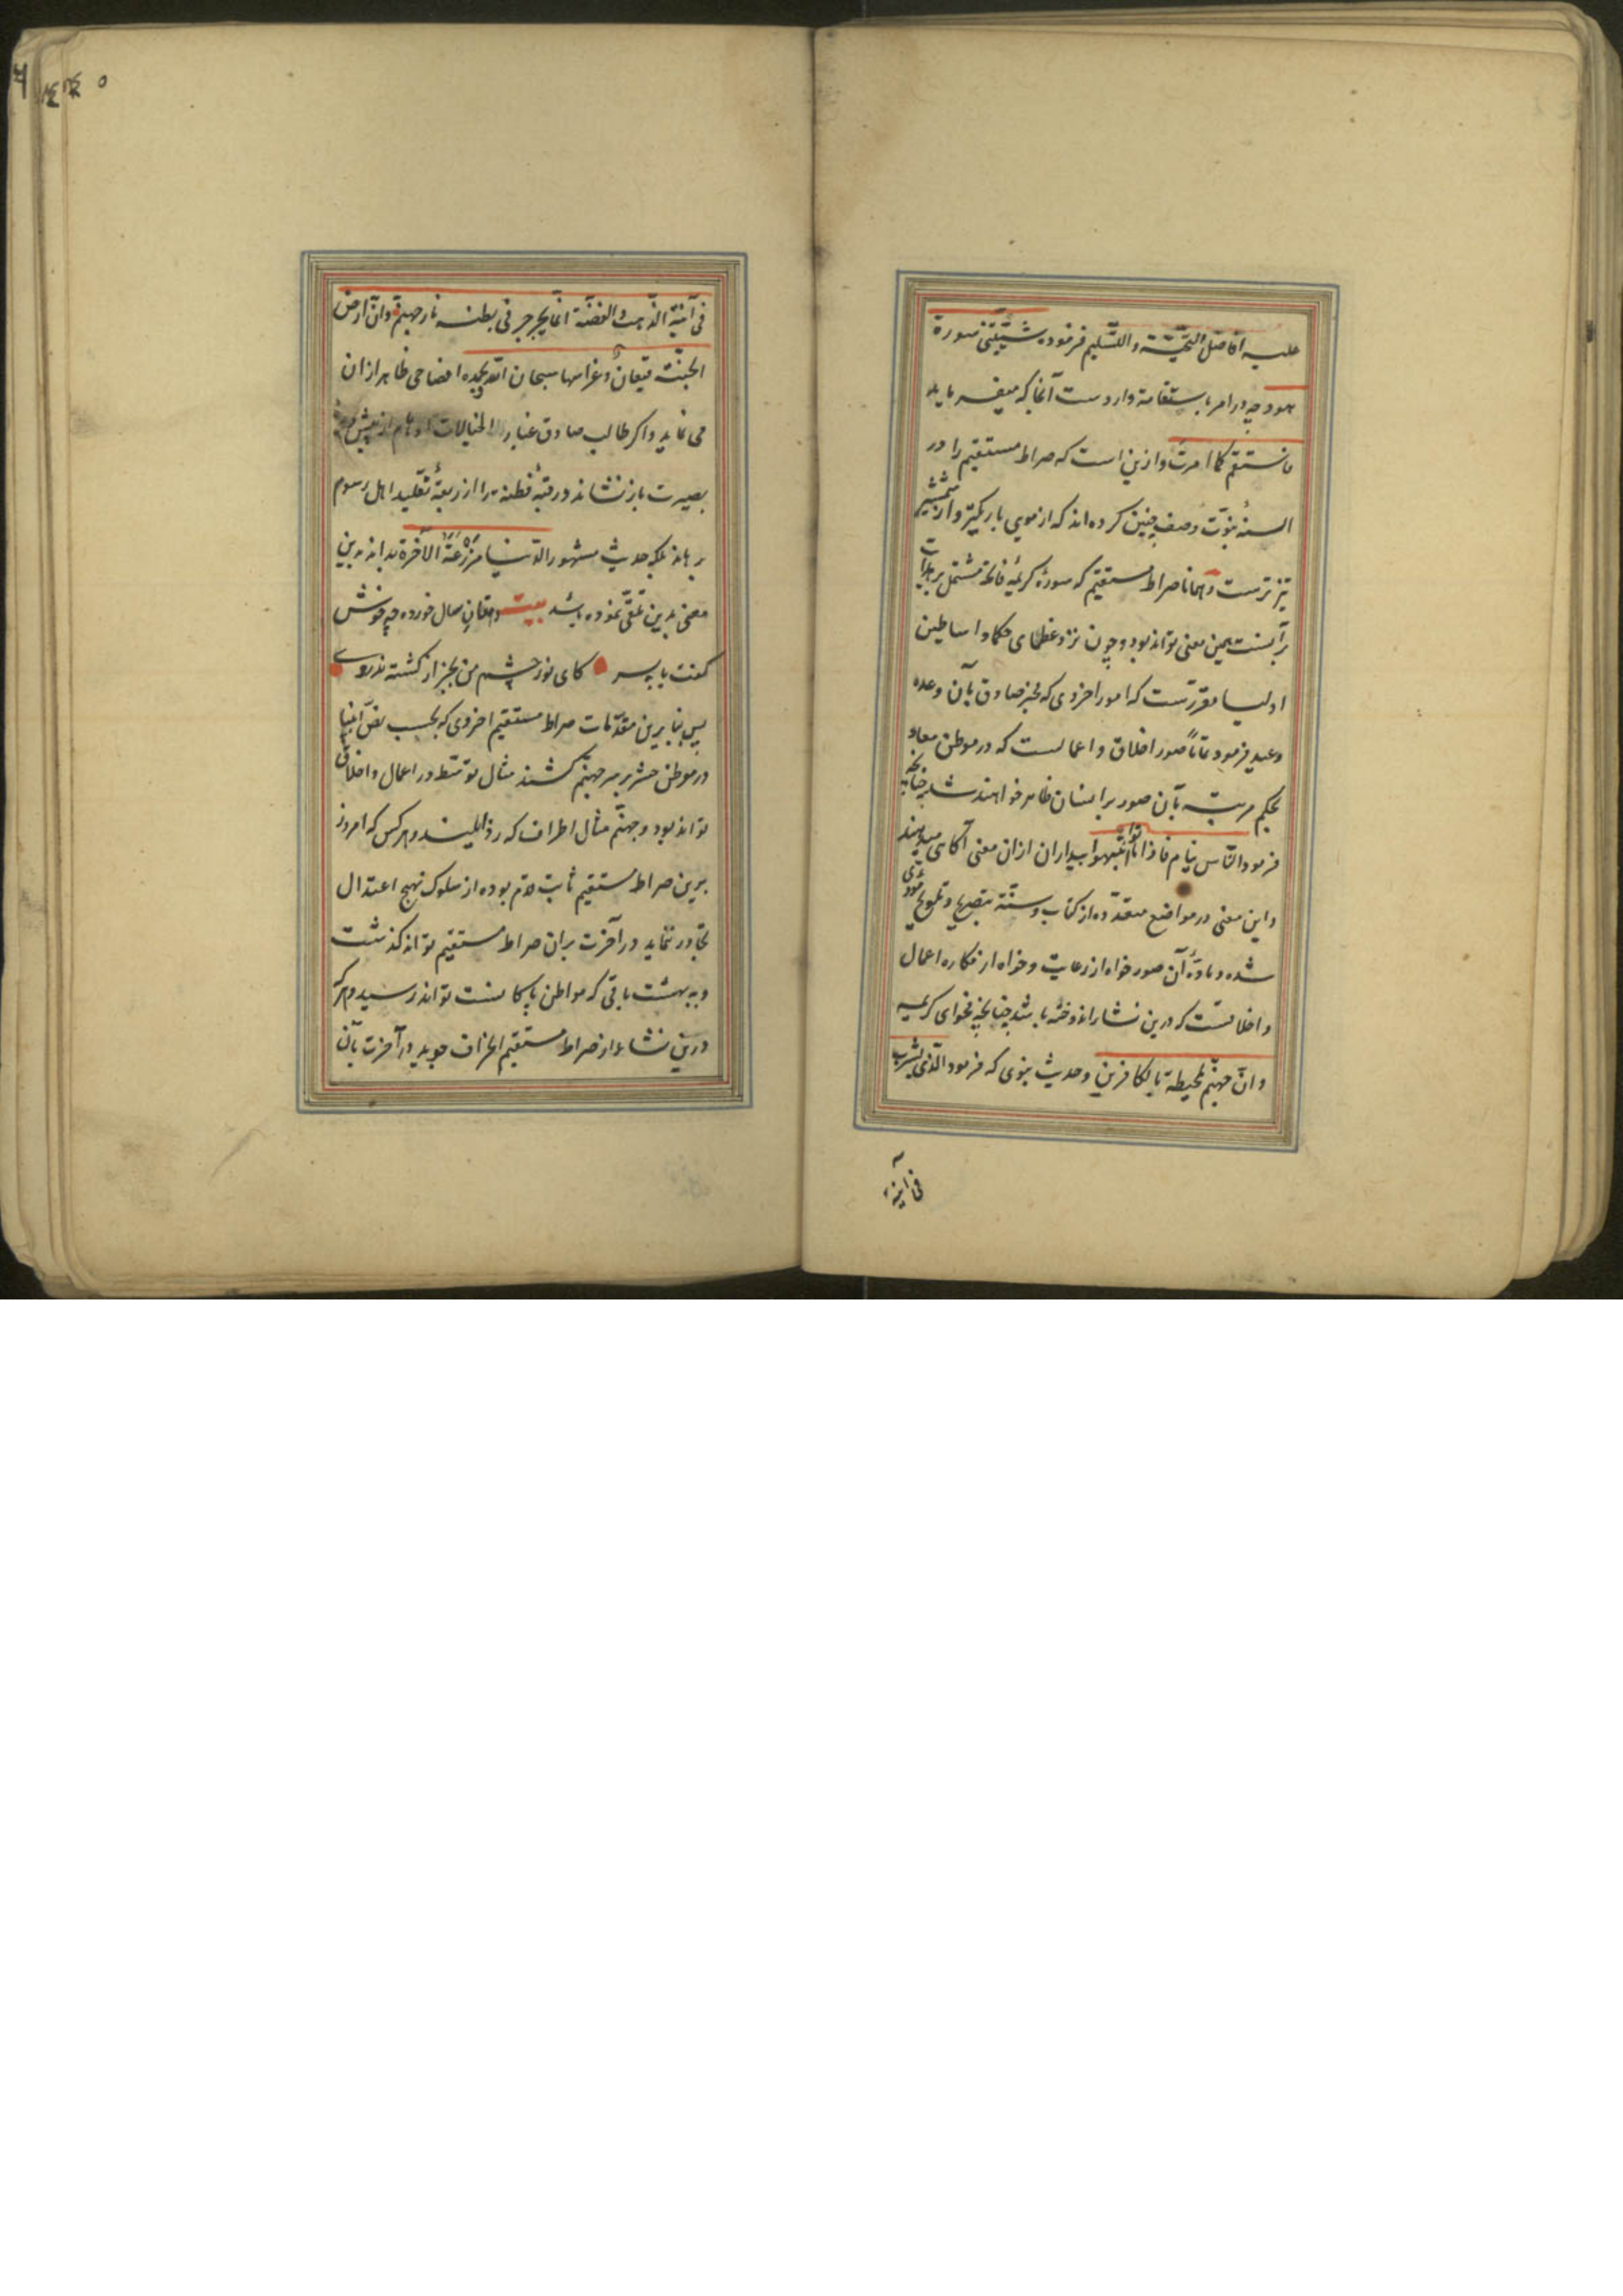 علیه افاضل التحیّة و التسلیم فرموده شیّبتنی سورة
هود چه در امر باستقامة واردست آنجا که میفرماید
فاستقم کما امرت و ازین است که صراط مستقیم را در
السنهٔ نبوّت وصف چنین کرده‌اند که از موی باریکتر و از شمشیر
تیزترست و همانا صراط مستقیم که سورهٔ کریمهٔ فاتحه مشتمل بر هدایت
برآنست همین معنی تواند بود و چون نزد عظمای حکما و اساطین
اولیا مقررست که امور اخروی که مخبر صادق بآن وعده
وعید فرمود تماماً صور اخلاق و اعمالست که در موطن معاد
بحکم مرتبه بآن صور برانسان ظاهر خواهند شد چنانچه
فرمود الناس نیام فاذا ماتوا انتبهوا بیداران ازان معنی آگاهی میدهند
و این معنی در مواضع متعدّده از کتاب و سنّة بتصریح و تلویح مؤدّی
شده و مادّهٔ آن صور خواه از رعایت و خواه از مکاره اعمال
و اخلاقست که درین نشأ اندوخته باشد چنانچه فحوای کریمه
و انّ جهنّم لمحیطة بالکافرین و حدیث نبوی که فرمود الّذی یشرب
فی آنیة
فی آنیة الذّهب و الفضّة انّما یجرجر فی بطنه نار جهنّم و انّ ارض
الجنّة قیعان و غراسها سبحان اللّه و بحمده افصاحی ظاهر ازان
می نماید و اکر طالب صادق غبار الخیالات اوهام از پیش
بصیرت بازنشاند و رقبهٔ فطنة را از ربقهٔ تقلید اهل رسوم
برهاند بلکه حدیث مشهور الدّنیا مزرعة الآخرة بداند برین
معنی بدین تلقّی نموده باشد بیت دهقان سال خورده چه خوش
کفت با پسر کای نور چشم من بجز از کشته ندروی
پس بنا برین مقدّمات صراط مستقیم اخروی که بحسب نصّ انبیا
در موطن حشر بر سر جهنّم کشند مثال توسّط در اعمال و اخلاق
تواند بود و جهنّم مثال اطراف که رذایلیند و هر کس که امروز
برین صراط مستقیم ثابت قدم بوده از سلوک نهج اعتدال
تجاوز ننماید در آخرت بران صراط مستقیم تواند کذشت
و به بهشت باقی که مواطن پاکانست تواند رسید و هر که
درین نشاء از صراط مستقیم انحراف جوید در آخرت بآن